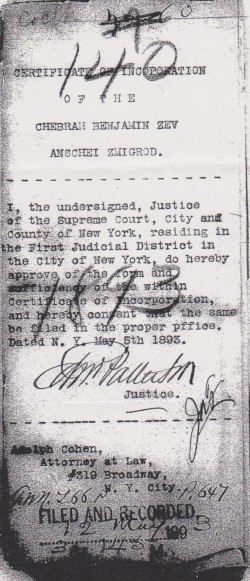 140
CERTIFICATE OF INCOPORATION
OF THE
CHEBRAH BENJAMIN ZEV
ANSCHEI ZMIGROD.
1893
I, the undersigned, Justice
of the Supreme Court, City and
County of New York, residing in
the First Judicial District in
the City of New York, do hereby
approve of the form and
sufficiency of the within
Certificate of Incorporation,
and hereby consent that the same
be filed in the proper pffice.
Dated N. Y. May 5th 1893.
Justice.
Adolph Cohen,
Attorney at Law,
#319 Broadway,
N. Y. City.
P. 647
FILED AND RECORDED
1893
M.